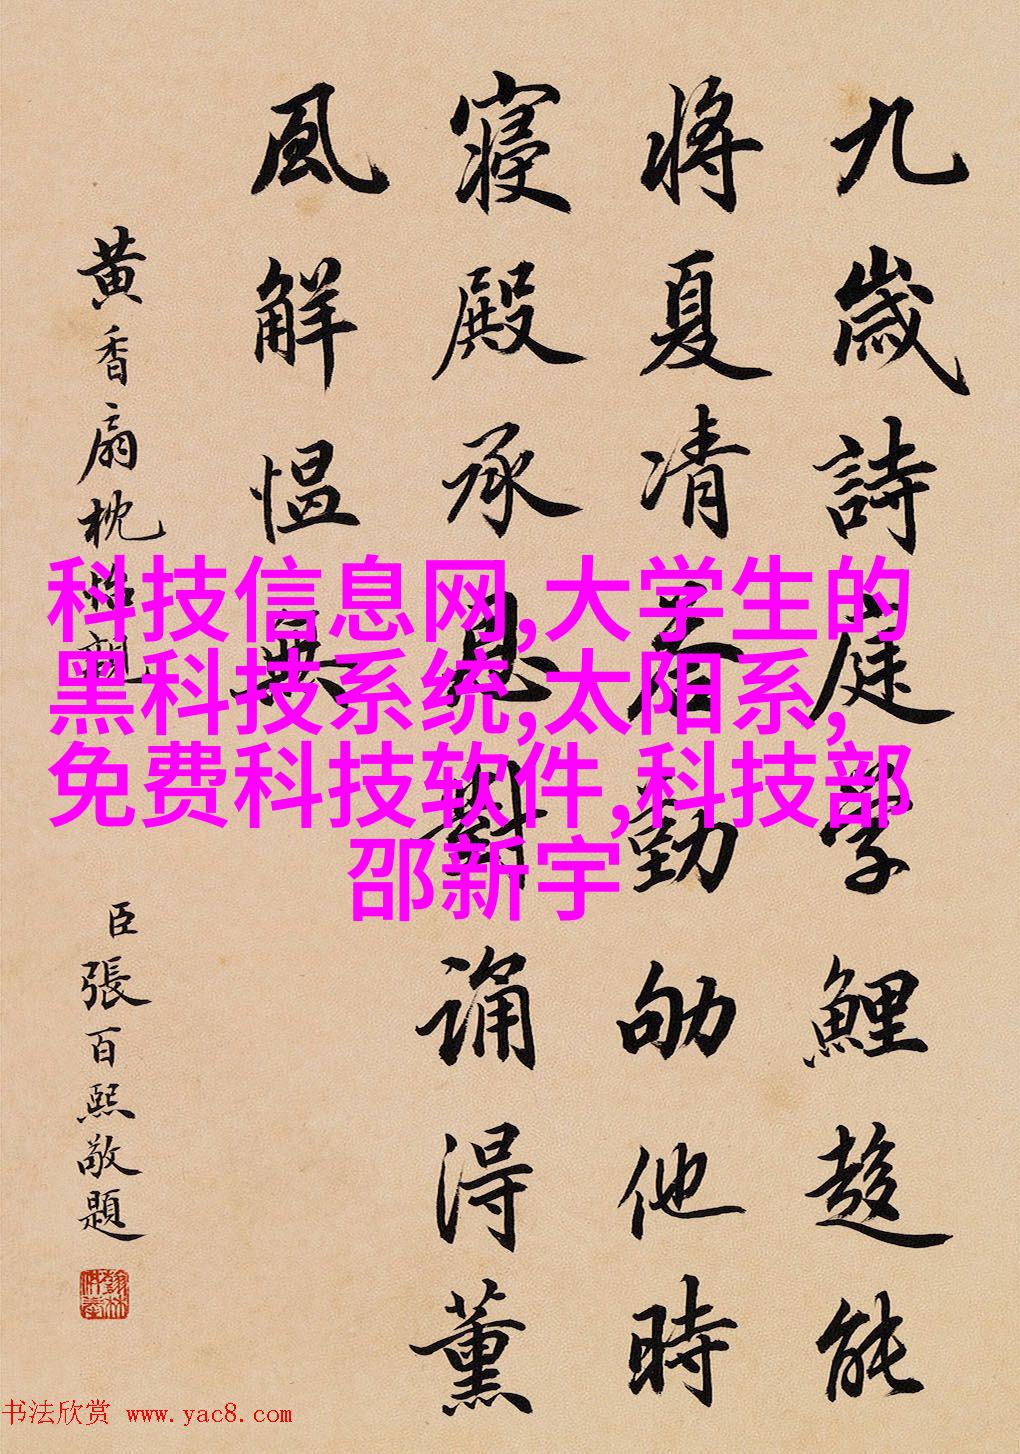 九歲詩庭學鯉趍能
將夏凊勤劬他時
寢殿承恩對誦得薰
風解慍
黃香扇枕怡親
臣張百熙敬題
科技信息网,大学生的
黑科技系统,太阳系,
免费科技软件,科技部
邵新宇
书法欣赏 www.yac8.com